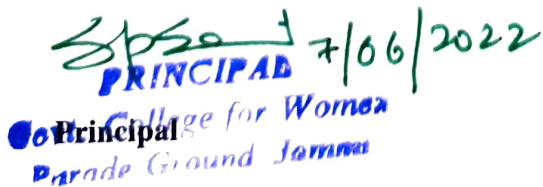 7/06/2022
PRINCIPAL
Govt. College for Women
Principal
Parade Ground Jammu